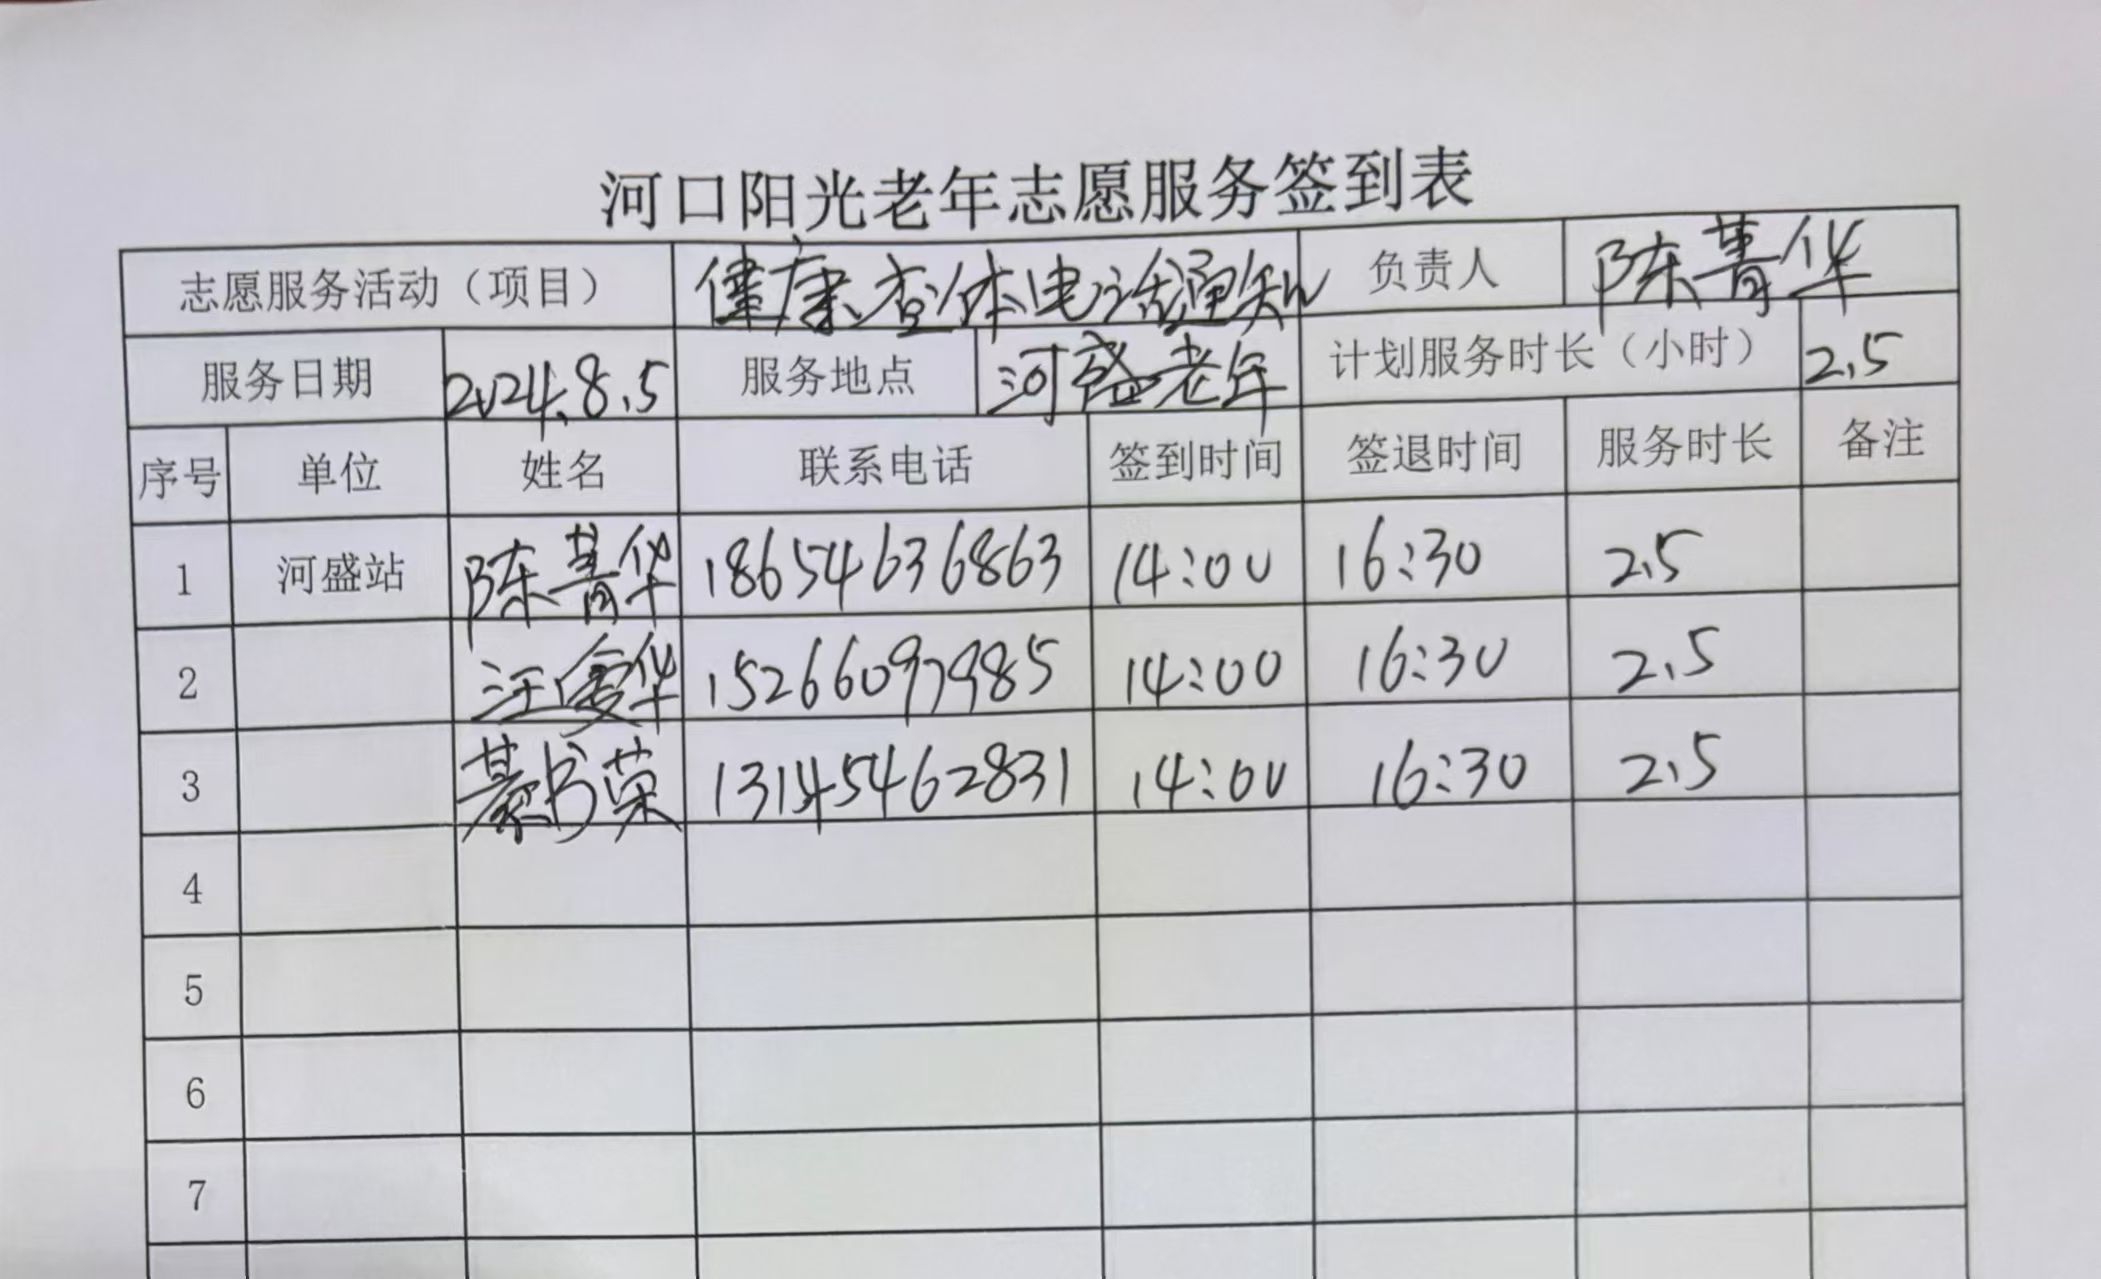 河口阳光老年志愿服务签到表
志愿服务活动（项目） 健康查体电话通知 负责人 陈菁华
服务日期 2024.8.5 服务地点 河盛老年 计划服务时长（小时） 2.5
序号 单位 姓名 联系电话 签到时间 签退时间 服务时长 备注
1 河盛站 陈菁华 18654636863 14:00 16:30 2.5
2 汪爱华 15266097985 14:00 16:30 2.5
3 綦书荣 13145462831 14:00 16:30 2.5
4
5
6
7